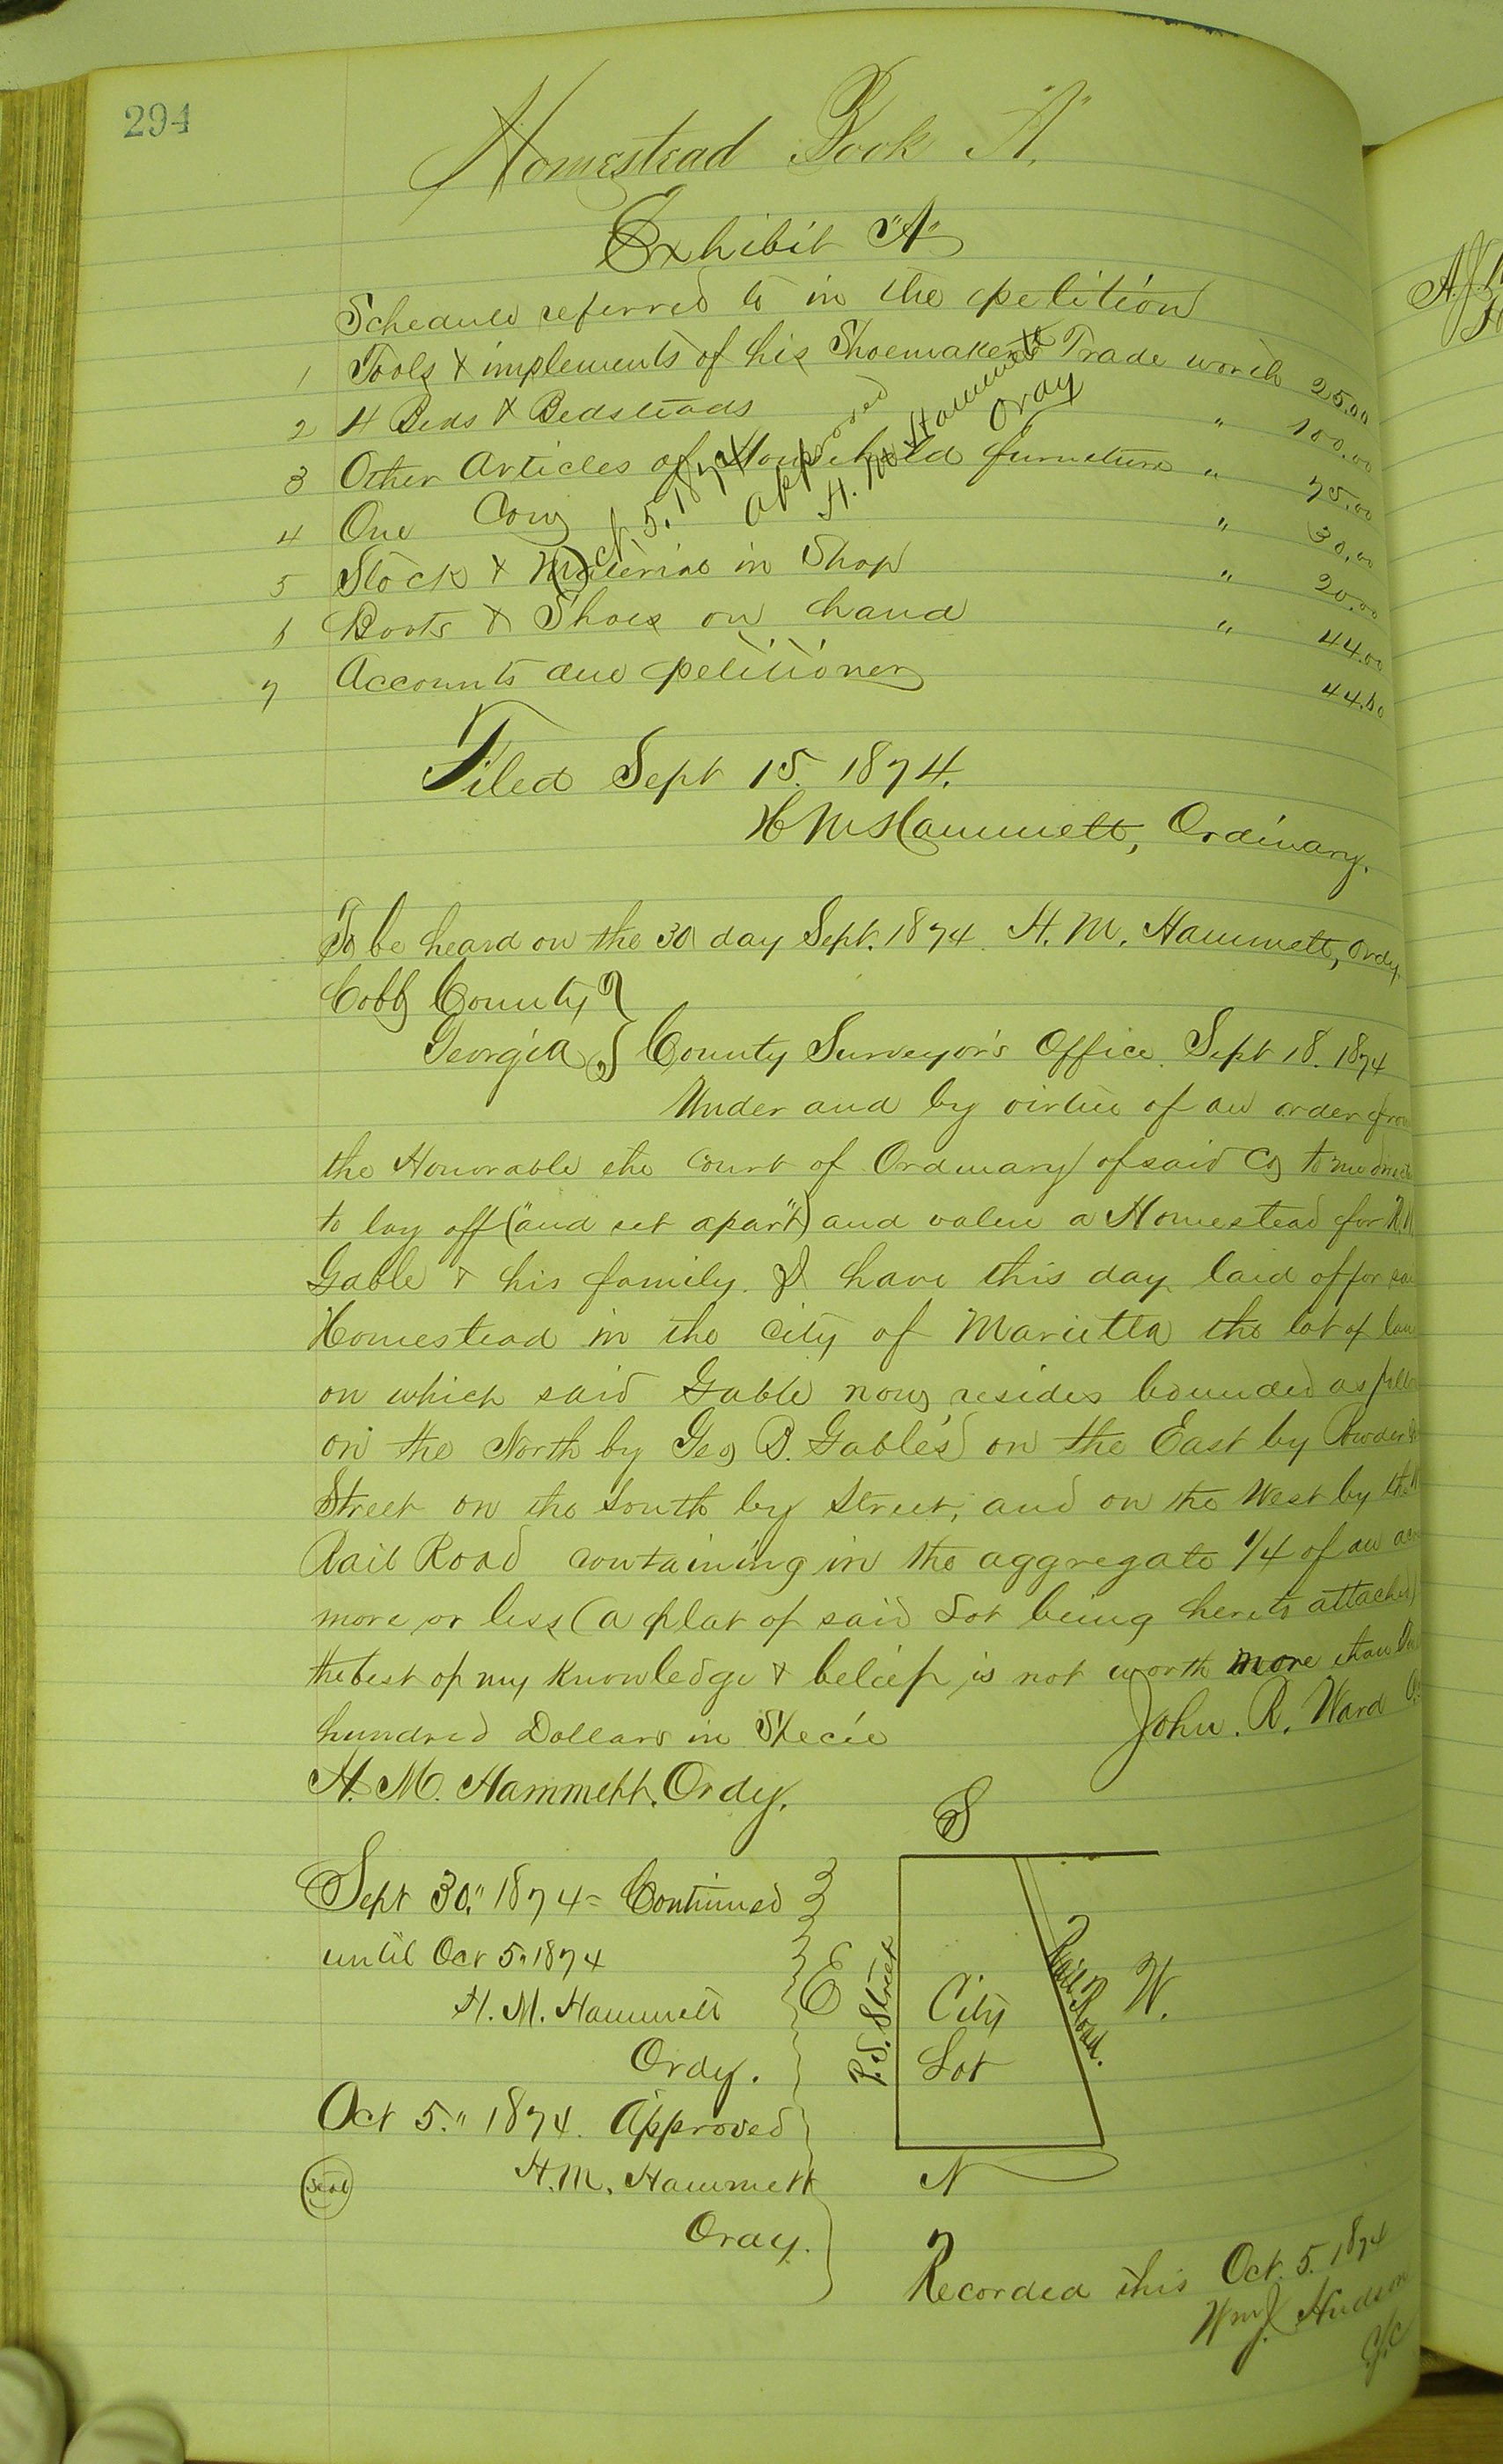 294
Homestead Book "A".
Exhibit "A"
Schedule referred to in the petition
1 Tools & implements of his Shoemakers Trade worth 25.00
2 4 Beds & Bedsteads " 100.00
3 Other Articles of Household furniture " 75.00
4 One Cow " 30.00
5 Stock & Material in Shop " 20.00
6 Boots & Shoes on hand " 44.00
7 Accounts due petitioner
Oct. 5. 1874
approved
H. M. Hammett
Ordy
Filed Sept 15. 1874.
H M Hammett, Ordinary.
To be heard on the 30 day Sept. 1874. H. M. Hammett, Ordy.
Cobb County
Georgia } County Surveyor's Office. Sept 18. 1874
Under and by virtue of an order from
the Honorable the Court of Ordinary of said Co to me
to lay off ("and set apart") and value a Homestead for
Gable & his family. I have this day laid off for
Homestead in the City of Marietta the lot of
on which said Gable now resides bounded as
on the North by Geo B. Gable's on the East by Powder
Street on the South by Street, and on the West by the
Rail Road containing in the aggregate 1/4 of an
more or less (a plat of said Lot being hereto attached)
the best of my knowledge & belief, is not worth more than
hundred Dollars in Specie John. R. Ward
H. M. Hammett. Ordy.
Sept 30." 1874 = Continued
until Oct 5. 1874
H. M. Hammett
Ordy.
Oct 5." 1874. Approved
Seal H. M. Hammett
Ordy.
S
E
P. S. Street
City
Lot
Rail Road.
W.
N
Recorded this Oct. 5. 1874
Wm J. Hudson